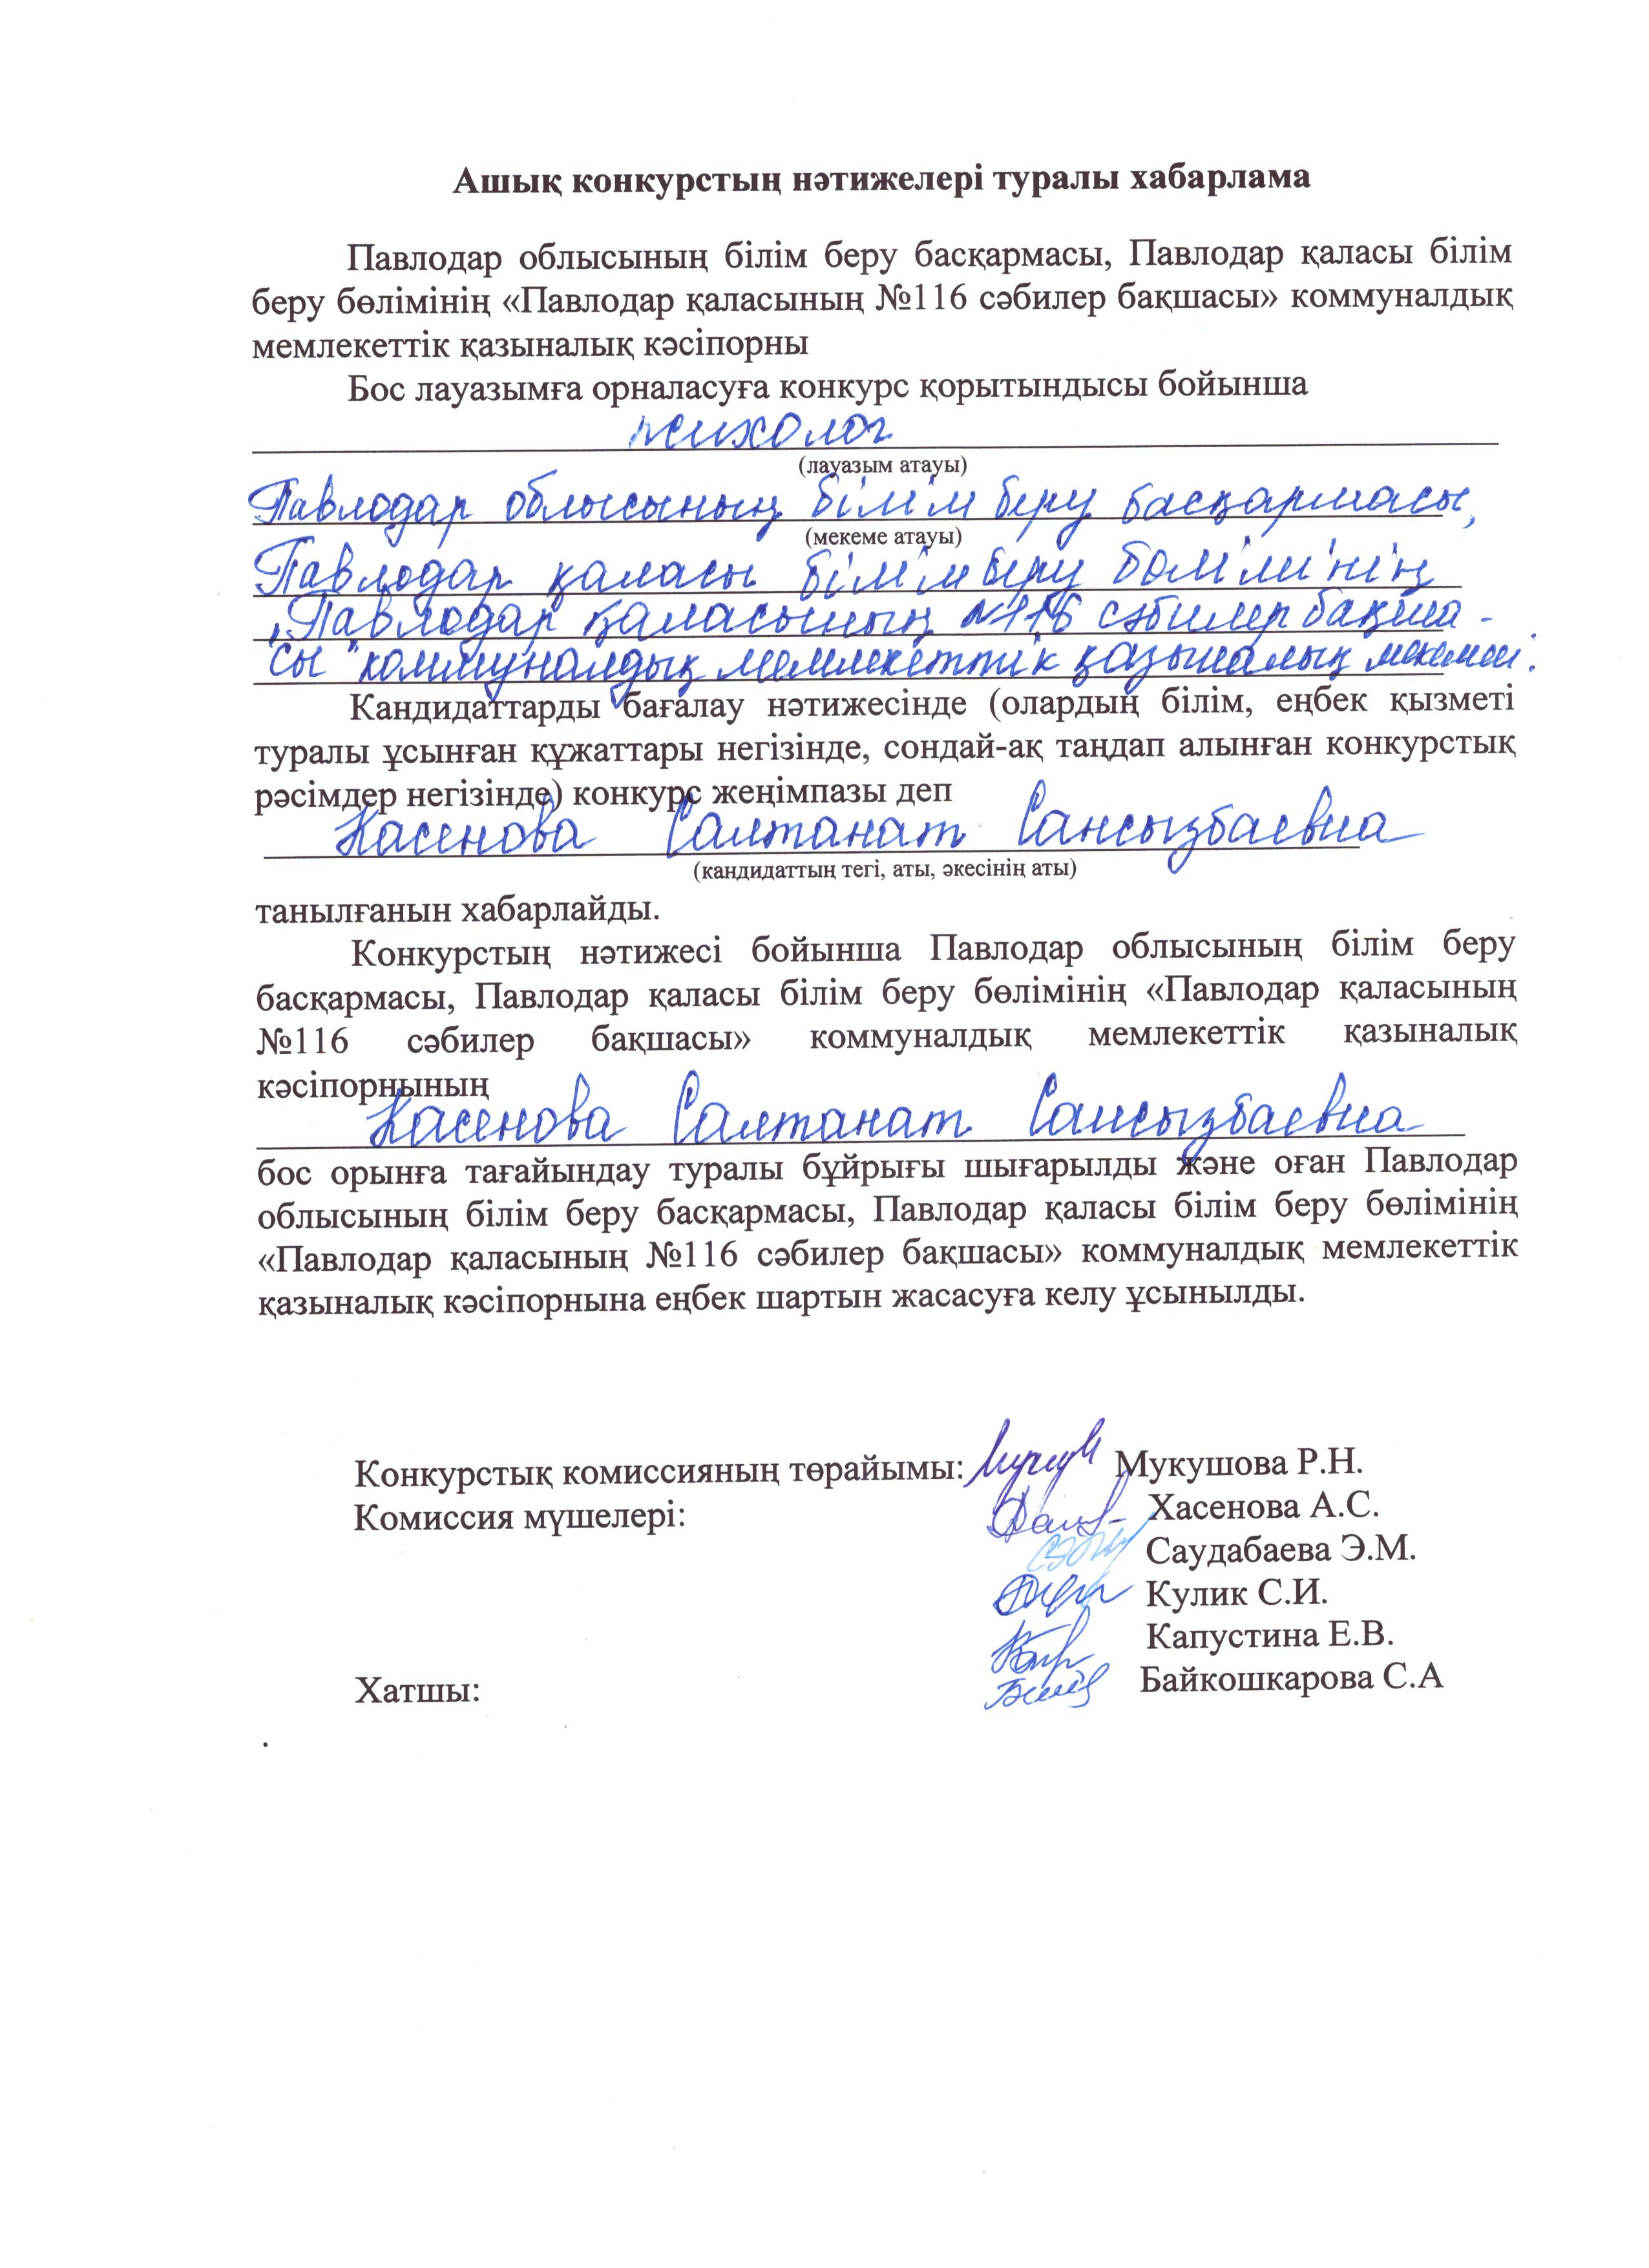 Ашық конкурстың нәтижелері туралы хабарлама
Павлодар облысының білім беру басқармасы, Павлодар қаласы білім
беру бөлімінің «Павлодар қаласының №116 сәбилер бақшасы» коммуналдық
мемлекеттік қазыналық кәсіпорны
Бос лауазымға орналасуға конкурс қорытындысы бойынша
психолог
(лауазым атауы)
Павлодар облысының білім беру басқармасы,
(мекеме атауы)
Павлодар қаласы білім беру бөлімінің
„Павлодар қаласының №116 сәбилер бақша-
сы" коммуналдық мемлекеттік қазыналық
Кандидаттарды бағалау нәтижесінде (олардың білім, еңбек қызметі
туралы ұсынған құжаттары негізінде, сондай-ақ таңдап алынған конкурстық
рәсімдер негізінде) конкурс жеңімпазы деп
Касенова Салтанат Сансызбаевна
(кандидаттың тегі, аты, әкесінің аты)
танылғанын хабарлайды.
Конкурстың нәтижесі бойынша Павлодар облысының білім беру
басқармасы, Павлодар қаласы білім беру бөлімінің «Павлодар қаласының
№116 сәбилер бақшасы» коммуналдық мемлекеттік қазыналық
кәсіпорнының
Касенова Салтанат Сансызбаевна
бос орынға тағайындау туралы бұйрығы шығарылды және оған Павлодар
облысының білім беру басқармасы, Павлодар қаласы білім беру бөлімінің
«Павлодар қаласының №116 сәбилер бақшасы» коммуналдық мемлекеттік
қазыналық кәсіпорнына еңбек шартын жасасуға келу ұсынылды.
Конкурстық комиссияның төрайымы: Мукушова Р.Н.
Комиссия мүшелері: Хасенова А.С.
Саудабаева Э.М.
Кулик С.И.
Капустина Е.В.
Хатшы: Байкошкарова С.А
.